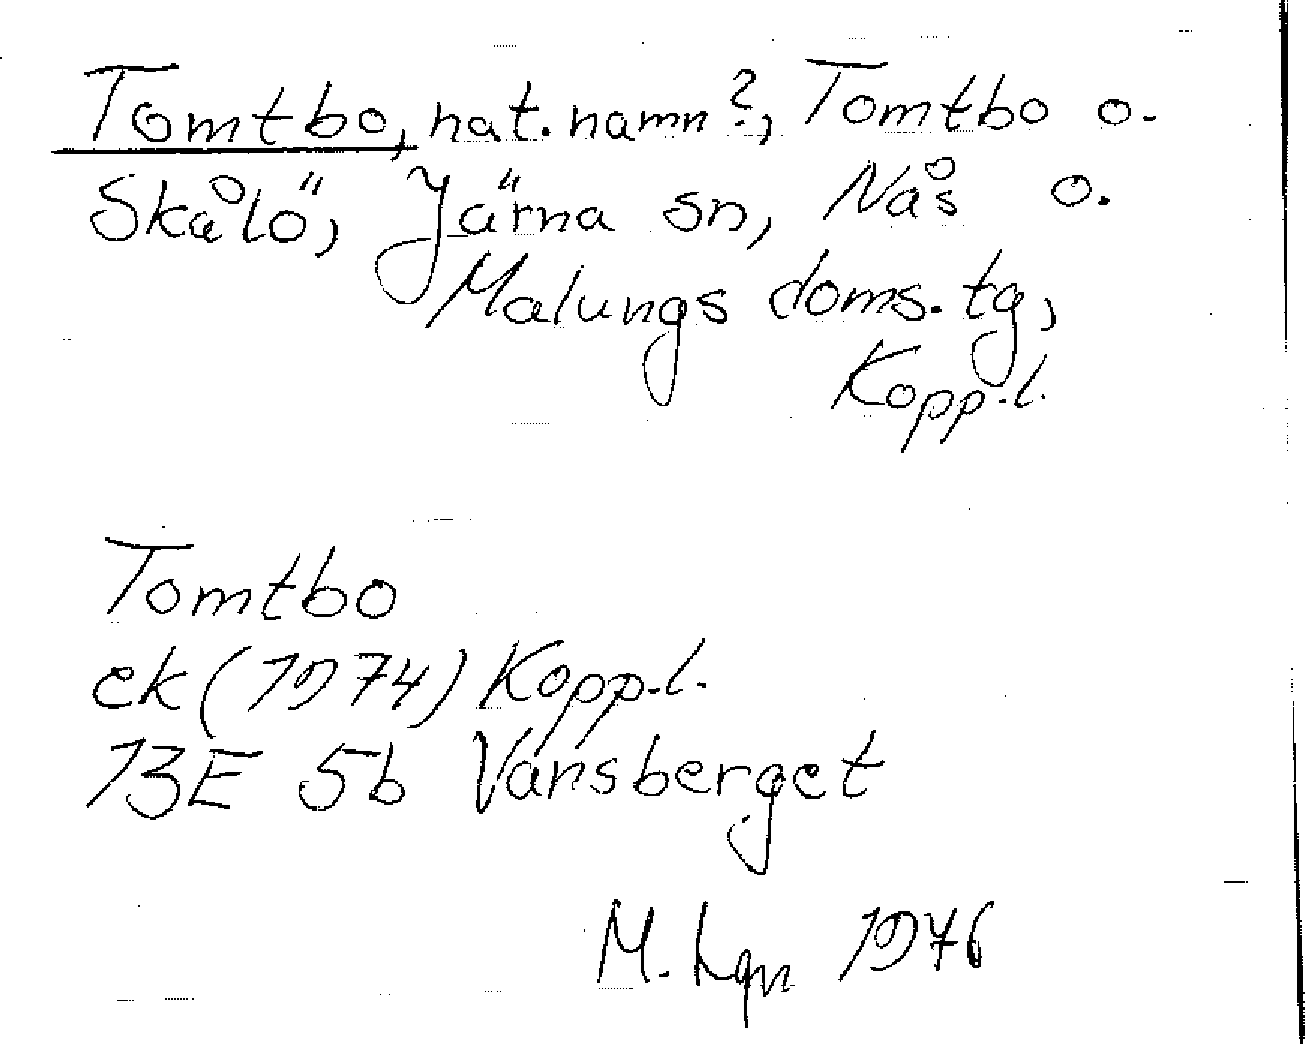 Tomtbo, nat. namn?, Tomtbo o.
Skålö, Järna sn, Nås o.
Malungs doms. tg,
Kopp. l.
Tomtbo
ek (1974) Kopp. l.
13E 5b Vansberget
M. Lgn 1976